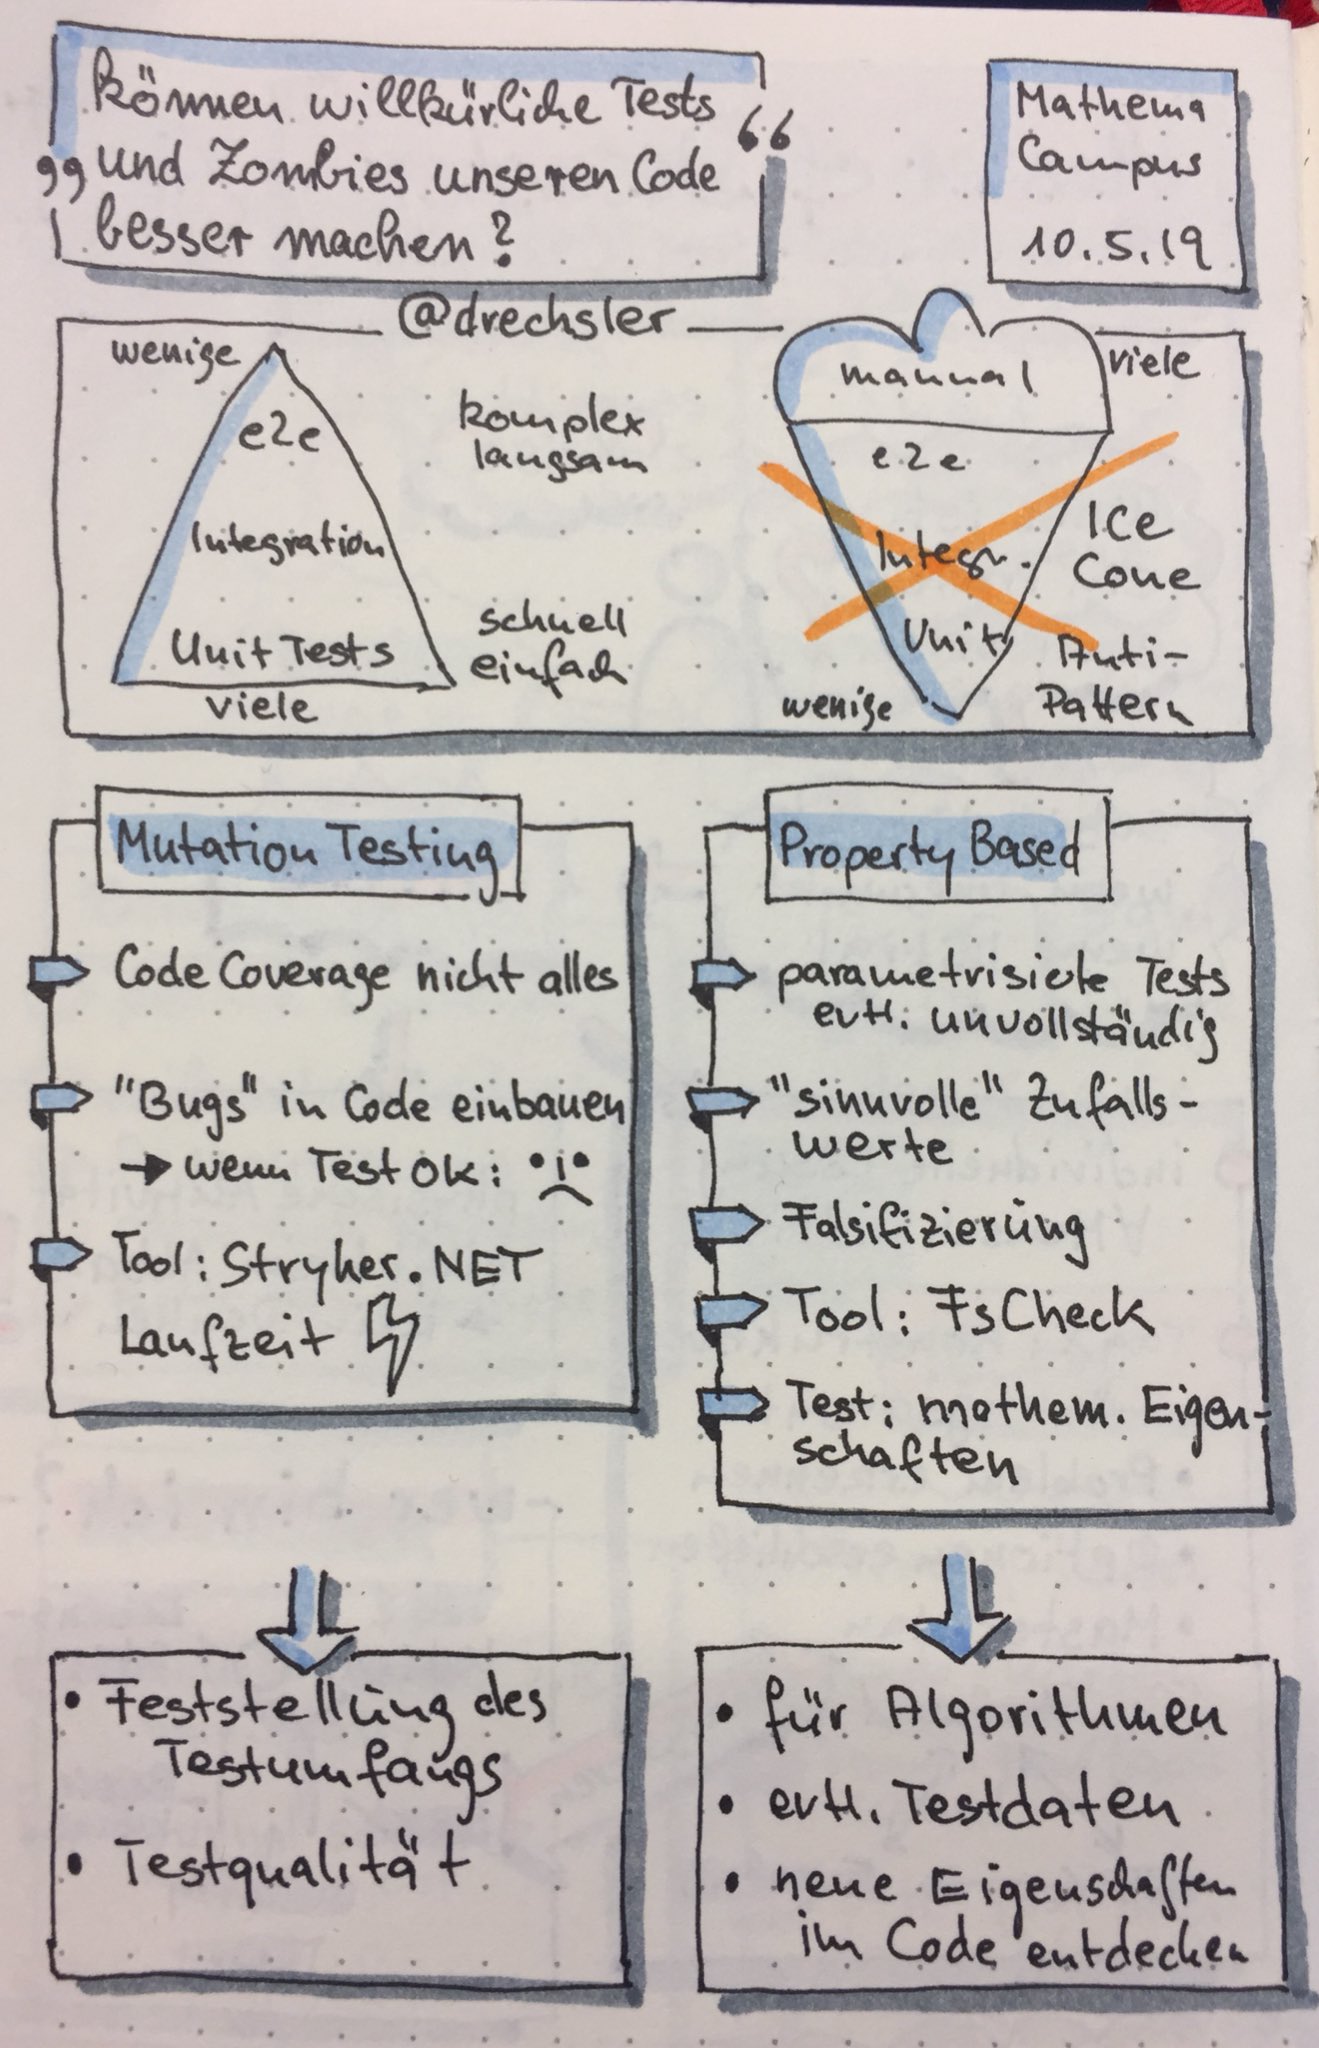 „können willkürliche Tests
und Zombies unseren Code
besser machen?“
Mathema
Campus
10.5.19
@drechsler
wenige
e2e
Integration
Unit Tests
viele
komplex
langsam
schnell
einfach
manual
viele
e2e
Integr.
Unit
wenige
ICe
Cone
Anti-
Pattern
Mutation Testing
Code Coverage nicht alles
"Bugs" in Code einbauen
→ wenn Test OK:
Tool: Stryker.NET
Laufzeit
Property Based
parametrisierte Tests
evtl. unvollständig
"sinnvolle" Zufalls-
werte
Falsifizierung
Tool: FsCheck
Test: mathem. Eigen-
schaften
• Feststellung des
Testumfangs
• Testqualität
• für Algorithmen
• evtl. Testdaten
• neue Eigenschaften
im Code entdecken